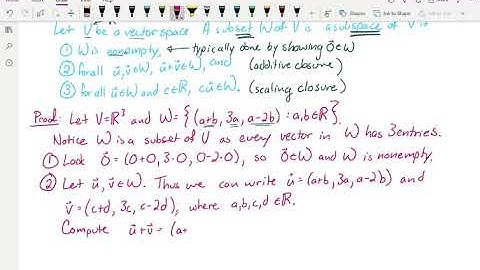 Let V be a vector space. A subset W of V is a subspace of V if
① W is nonempty, ← typically done by showing 0⃗∈W
② for all u⃗,v⃗∈W, u⃗+v⃗∈W, and (additive closure)
③ for all u⃗∈W and c∈ℝ, cu⃗∈W. (scaling closure)
Proof: Let V=ℝ³ and W={(a+b, 3a, a-2b) : a,b∈ℝ}.
Notice W is a subset of V as every vector in W has 3 entries.
① Look 0⃗ = (0+0, 3·0, 0-2·0), so 0⃗∈W and W is nonempty.
② Let u⃗,v⃗∈W. Thus we can write u⃗=(a+b, 3a, a-2b) and
v⃗=(c+d, 3c, c-2d), where a,b,c,d∈ℝ.
Compute u⃗+v⃗ = (a+